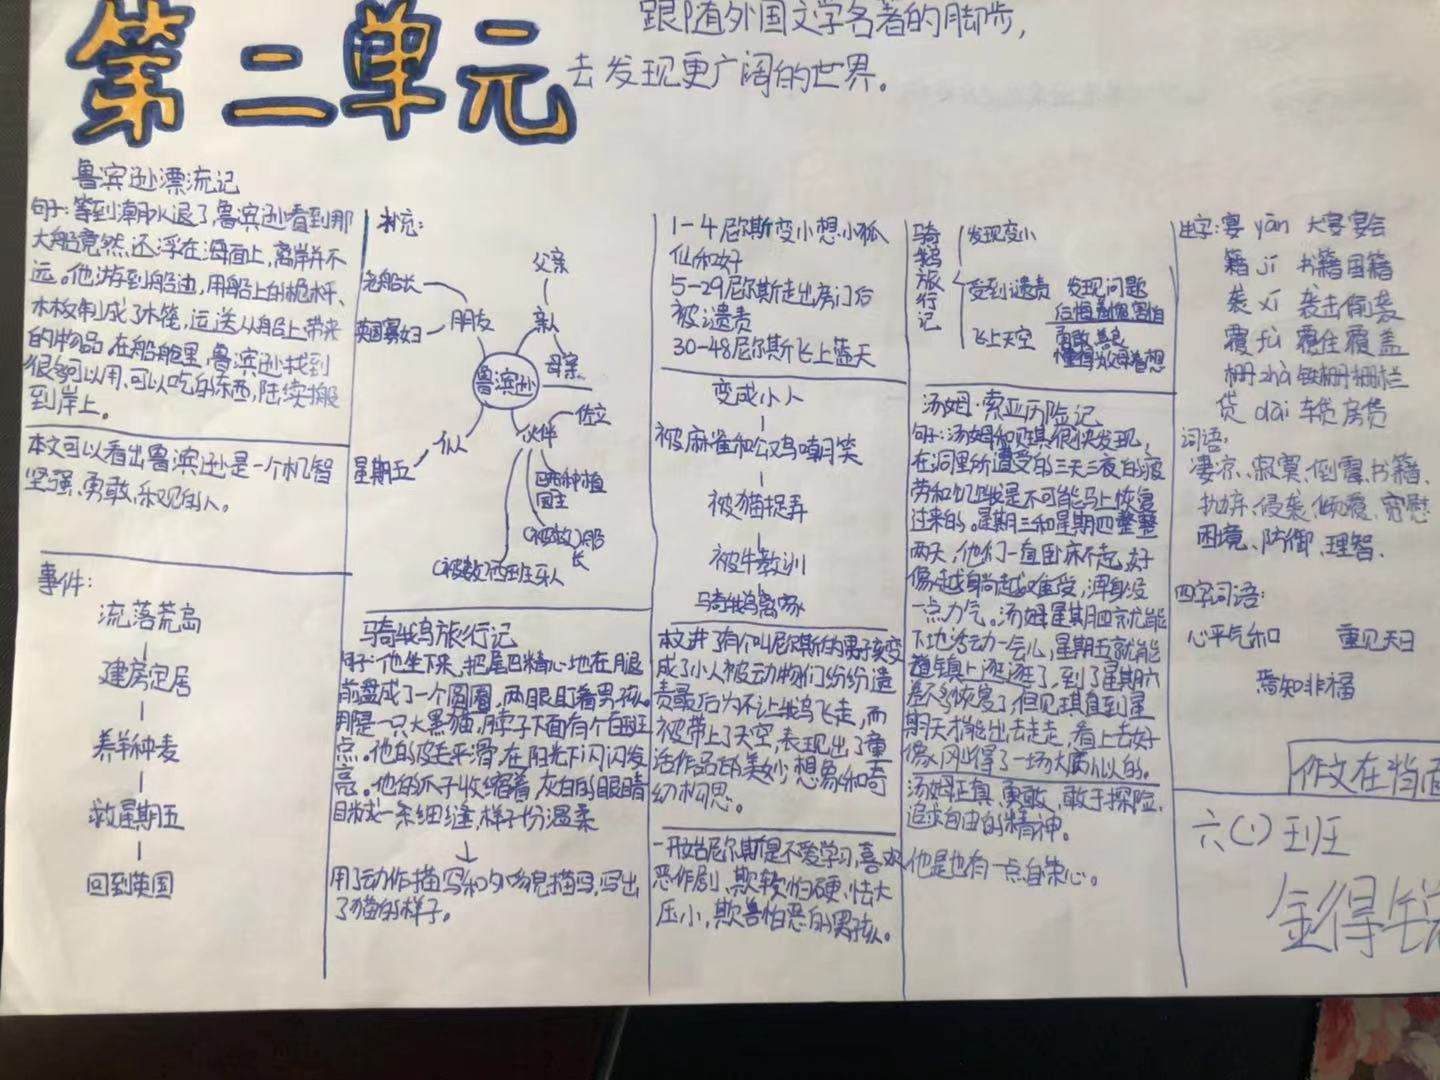 第二单元
跟随外国文学名著的脚步,
去发现更广阔的世界。
鲁滨逊漂流记
句子:等到潮水退了,鲁滨逊看到那
大船竟然还浮在海面上,离岸并不
远。他游到船边,用船上的桅杆、
木板制成了木筏,运送从船上带来
的物品。在船舱里,鲁滨逊找到
很多可以用、可以吃的东西,陆续搬
到岸上。
本文可以看出鲁滨逊是一个机智
坚强、勇敢、乐观的人。
事件:
流落荒岛
建房定居
养羊种麦
救星期五
回到英国
补充:
父亲
老船长
亲人
英国寡妇
朋友
母亲
鲁滨逊
佐立
仆人
伙伴
星期五
巴西种植
园主
(被救)船
长
(被救)西班牙人
骑鹅旅行记
句子:他坐下来,把尾巴精心地在腿
前盘成了一个圆圈,两眼盯着男孩。
那是一只大黑猫,脖子下面有个白斑
点。他的皮毛平滑,在阳光下闪闪发
亮。他的爪子收缩着,灰白的眼睛
眯成一条细缝,样子十分温柔
用了动作描写和外貌描写,写出
了猫的样子。
1-4尼尔斯变小想小狐
仙和好
5-29尼尔斯走出房门后
被谴责
30-48尼尔斯飞上蓝天
变成小人
被麻雀和公鸡嘲笑
被猫捉弄
被牛教训
骑鹅离家
本文讲了有个叫尼尔斯的男孩变
成了小人被动物们纷纷谴
责最后为不让鹅飞走,而
被带上了天空,表现出了童
话作品的美妙想象和奇
幻构思。
一开始尼尔斯是不爱学习,喜欢
恶作剧、欺软怕硬,恃大
压小,欺善怕恶的男孩。
骑鹅旅行记
发现变小
受到谴责 发现问题
飞上天空 勇敢善良
懂得为父母着想
汤姆·索亚历险记
句子:汤姆和贝琪很快发现,
在洞里所遭受的三天三夜的疲
劳和饥饿是不可能马上恢复
过来的。星期三和星期四整整
两天,他们一直卧床不起,好
像越躺越难受,浑身没
一点力气。汤姆星期四就能
下地活动一会儿,星期五就能
趟镇上逛逛了,到了星期六
差不多恢复了,但贝琪直到星
期天才能出去走走,看上去好
像刚得了一场大病似的。
汤姆正真,勇敢,敢于探险,
追求自由的精神。
他是也有一点自朱心。
生字:宴 yàn 大宴宴会
籍 jí 书籍国籍
袭 xí 袭击偷袭
覆 fù 覆住覆盖
栅 zhà 铁栅栅栏
贷 dài 车贷房贷
词语:
凄凉、寂寞、倒霉、书籍、
抛弃、侵袭、倾覆、宽慰
困境、防御、理智、
四字词语:
心平气和 重见天日
焉知非福
作文在背面
六(1)班
金得